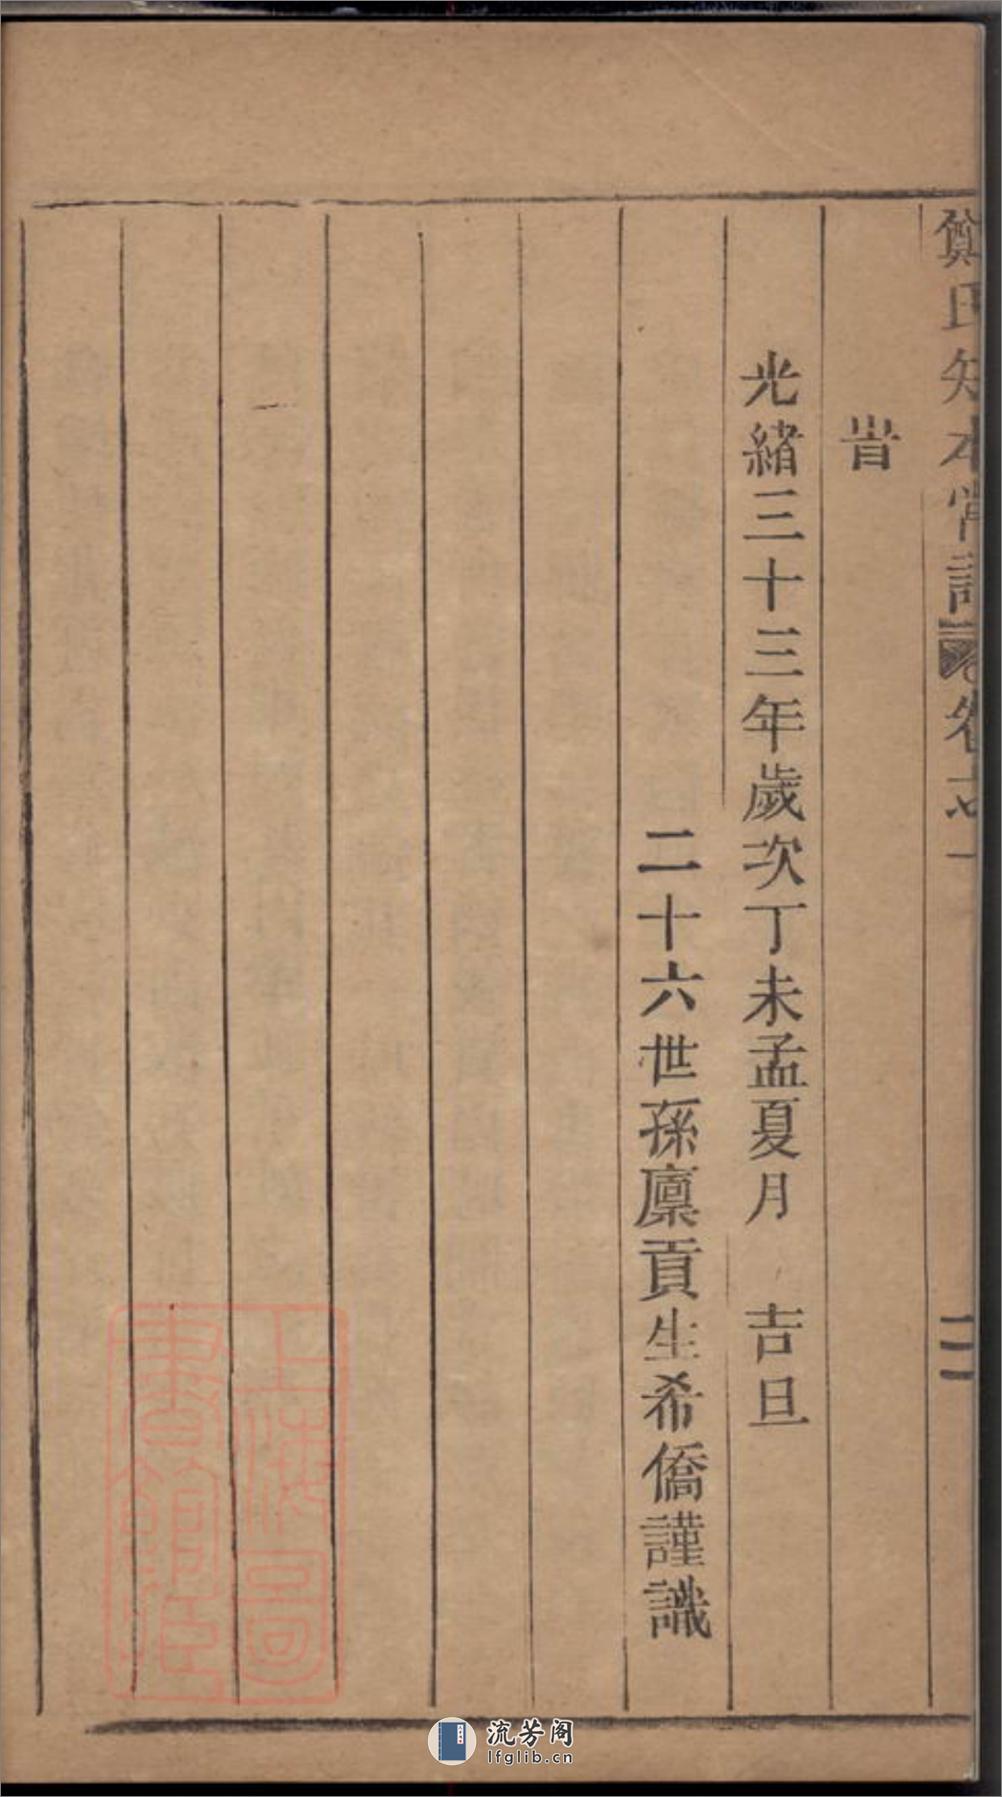 旹
光緒三十三年歲次丁未孟夏月　吉旦
二十六世孫廩貢生希僑謹識
氏知本堂譜
卷之一
二
上海圖書館藏
流芳阁
lfglib.cn